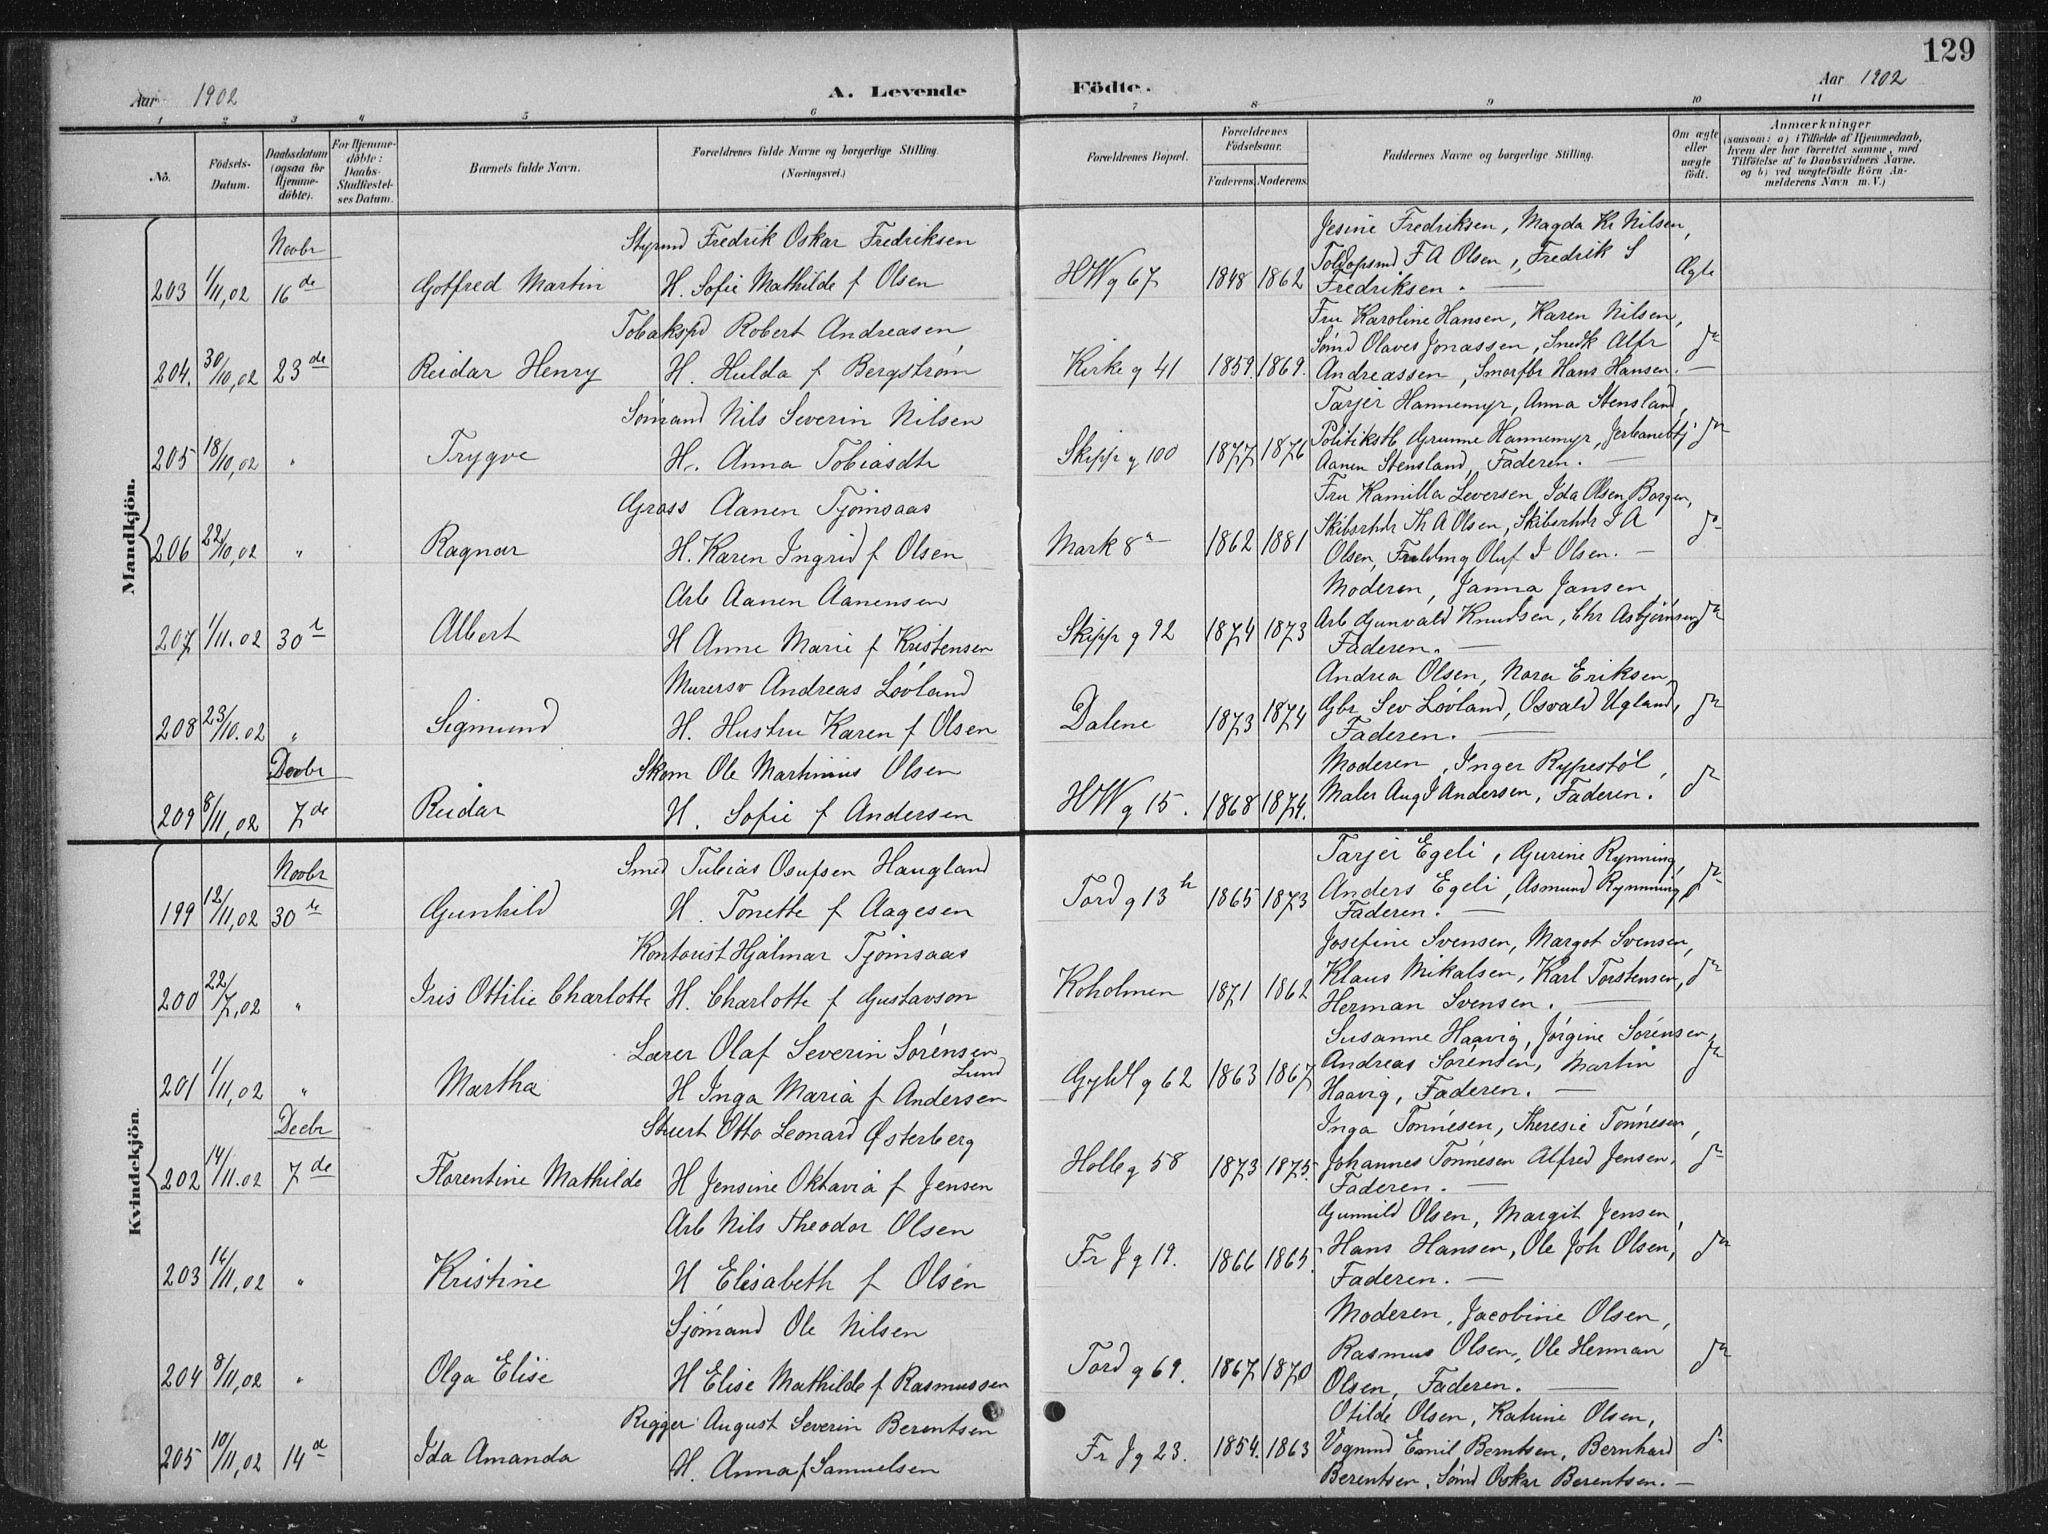 129
Aar 1902 A. Levende Födte. Aar 1902
1 2 3 4 5 6 7 8 9 10 11
No.
Födsels-Datum.
Daabsdatum (ogsaa for Hjemmedöbte).
For Hjemmedöbte: Daabs-Stadfæstelses Datum.
Barnets fulde Navn.
Forældrenes fulde Navne og borgerlige Stilling. (Næringsvei.)
Forældrenes Bopæl.
Forældrenes Födselsaar.
Faderens. Moderens.
Faddernes Navne og borgerlige Stilling.
Om ægte eller uægte födt.
Anmærkninger
(saasom: a) i Tilfælde af Hjemmedaab, hvem der har forrettet samme, med Tilföielse af to Daabsvidners Navne, og b) ved uægtefödte Börn Anmelderens Navn m. V.)
Mandkjön.
Novbr
203 1/11,02 16 de Gotfred Martin
Styrmd Fredrik Oskar Fredriksen
H. Sofie Mathilde f Olsen
HWg 67 1848 1862
Jesine Fredriksen, Magda Kr Nilsen,
Toldopsmd F A Olsen, Fredrik S
Fredriksen. —
Ægte
204. 30/10,02 23 de Reidar Henry
Tobakspd Robert Andreasen
H. Hulda f Bergstrøm
Kirkeg 41 1859. 1869.
Fru Karoline Hansen, Karen Nilsen,
Sømd Olaves Jonassen, Snedk Alfr
Andreassen, Smørfbr Hans Hansen. —
do
205 18/10,02 " Trygve
Sømand Nils Severin Nilsen
H. Anna Tobiasdtr
Skippg 100 1877 1876
Tarjer Hannemyr, Anna Stensland,
Grunne Hannemyr,
Aanen Stensland, Faderen. —
do
206 22/10,02 " Ragnar
Gross Aanen Tjømsaas
H. Karen Ingrid f Olsen
Mark 8 a 1862 1881
Fru Kamilla Seversen, Ida Olsen Borgen,
Skibsrhdr Th A Olsen, Skibsrhdr I A
Olsen, Fuldmg Oluf I Olsen. —
do
207 1/11.02 30 te Albert
Arb Aanen Aanensen
H Anne Marie f Kristensen
Skippg 92 1874 1873
Moderen, Janna Jansen
Arb Gunvald Knudsen, Chr Asbjørnsen,
Faderen. —
do
208 23/10.02 " Sigmund
Murersv Andreas Løvland
H. Hustru Karen f Olsen
Dalene 1873 1874
Andrea Olsen, Nora Eriksen,
Gbr Sev Løvland, Osvald Ugland,
Faderen. —
do
Decbr
209 8/11,02 7 de Reidar
Skom Ole Martinius Olsen
H. Sofie f Andersen
HWg 15. 1868 1874.
Moderen, Inger Rypestøl,
Maler Aug I Andersen, Faderen.
do
Kvindekjön.
Novbr
199 12/11,02 30 te Gunhild
Smed Tobias Osufsen Haugland
H. Tonette f Aagesen
Tordg 13 b 1865 1873
Tarjer Egeli, Gurine Rynning,
Anders Egeli, Asmund Rynning,
Faderen. —
do
200 22/7,02 " Iris Ottilie Charlotte
Kontorist Hjalmar Tjømsaas
H. Charlotte f Gustavson
Koholmen 1871 1862
Josefine Svensen, Margot Svensen,
Klaus Mikalsen, Karl Torstensen,
Herman Svensen. —
do
201 1/11,02 " Martha
Lærer Olaf Severin Sørensen
Lund
H Inga Maria f Andersen
Gyldlg 62 1863 1867
Susanne Haavig, Jørgine Sørensen,
Andreas Sørensen, Martin
Haavig, Faderen. —
do
Decbr
202 14/11.02 7 de Florentine Mathilde
Stuert Otto Leonard Østerberg
H Jensine Oktavia f Jensen
Holleg 58 1873 1875.
Inga Tønnesen, Theresie Tønnesen,
Johannes Tønnesen Alfred Jensen,
Faderen. —
do
203 16/11,02 " Kristine
Arb Nils Theodor Olsen
H Elisabeth f Olsen
Fr Jg 19. 1866 1865.
Gunnild Olsen, Margit Jensen,
Hans Hansen, Ole Joh Olsen,
Faderen. —
do
204 8/11,02 " Olga Elise
Sjømand Ole Nilsen
H Elise Mathilde f Rasmussen
Tordg 69. 1867 1870
Moderen, Jacobine Olsen,
Rasmus Olsen, Ole Herman
Olsen, Faderen. —
do
205 10/11,02 14 d Ida Amanda
Rigger August Severin Berentsen
H. Anna f Samuelsen
Fr Jg 23. 1854. 1863
Otilde Olsen, Katrine Olsen,
Vognmd Emil Berntsen, Bernhard
Berentsen, Sømd Oskar Berentsen. —
do